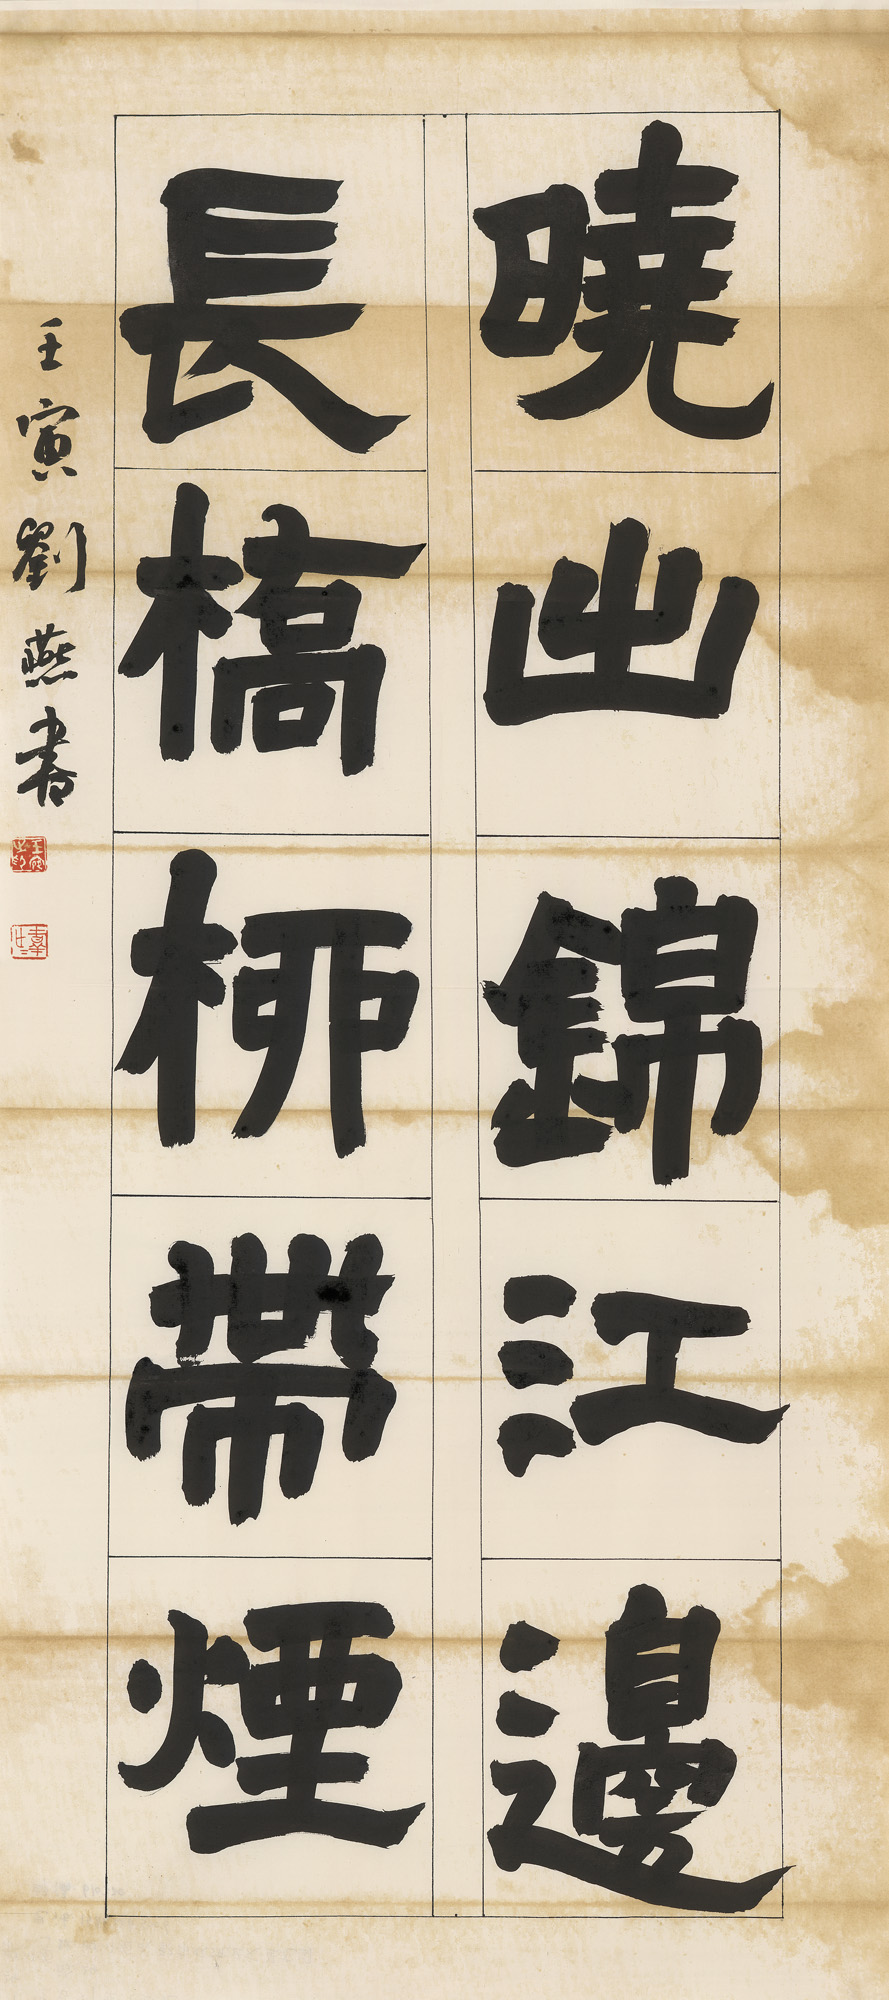 曉出錦江邊
長橋柳帶煙
壬寅劉燕書